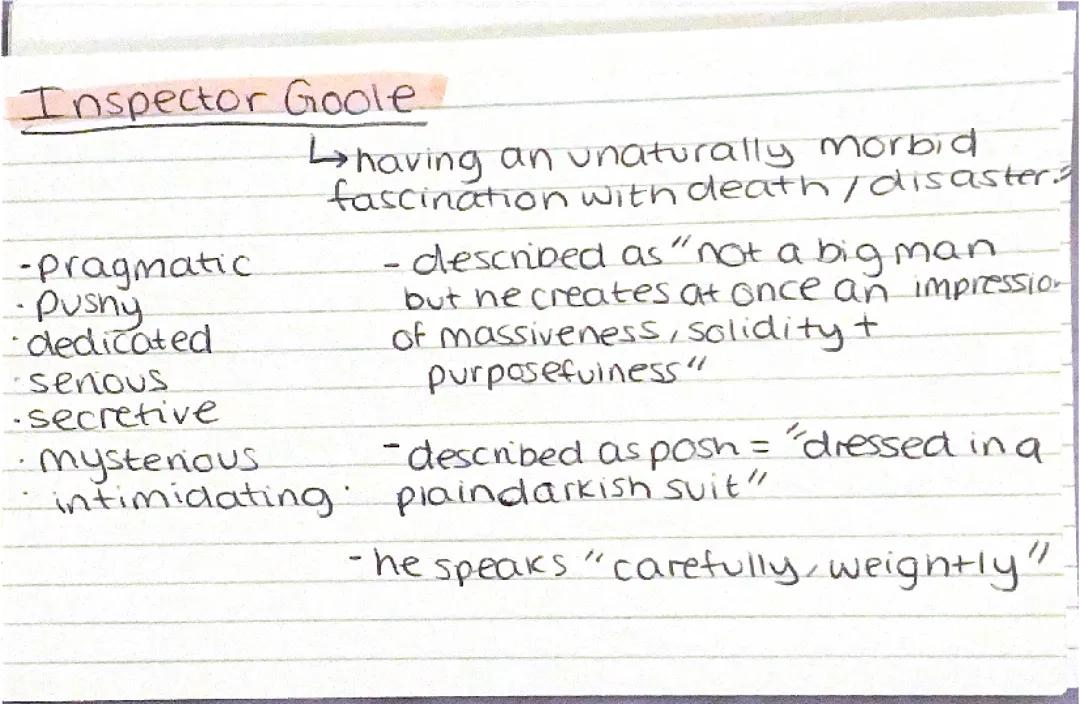 Inspector Goole
↳having an unaturally morbid
fascination with death / disaster.
-pragmatic
· pushy
· dedicated
· serious
· secretive
· mysterious
· intimidating
- described as "not a big man
but he creates at once an impression
of massiveness, solidity +
purposefulness"
- described as posh = "dressed in a
plain darkish suit"
- he speaks "carefully, weightly"